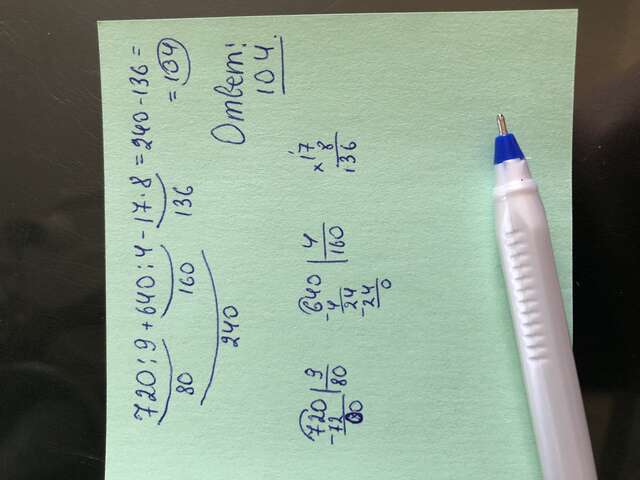 720:9+640:4-17·8=240-136=
80 160 136 =104
240
Ответ:
104.
720 9 640 4 17
-72 80 -4 160 × 8
00 24 136
-24
0